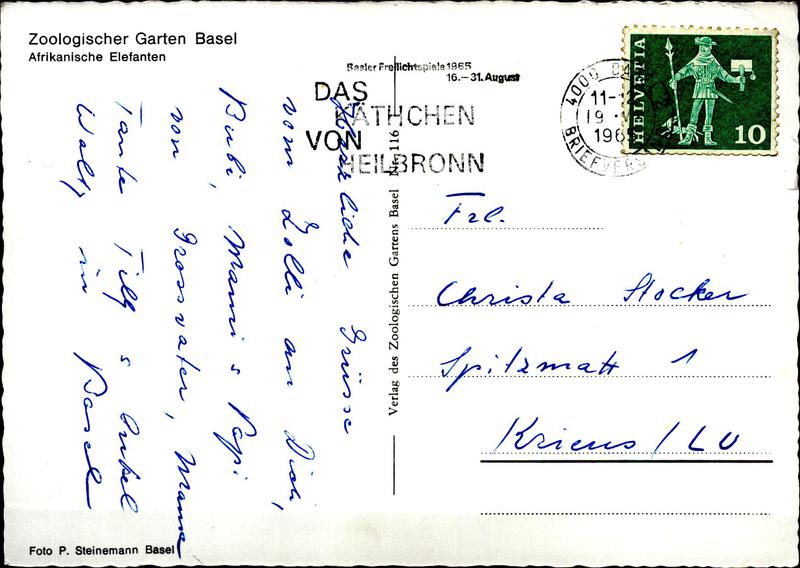 Zoologischer Garten Basel
Afrikanische Elefanten
Basler Freilichtspiele 1965
16.–31. August
DAS
KÄTHCHEN
VON
HEILBRONN
4000 BA
11-
19
1965
BRIEFVERS
HELVETIA
10
Herzliche Grüsse
vom Zolli an Dich,
Bubi, Mami & Papi
von Grossvater, Mama
Tante Tilly & Onkel
Walti in Basel
Verlag des Zoologischen Gartens Basel Nr. 116
Frl.
Christa Stocker
Spitzmatt 1
Kriens / LU
Foto P. Steinemann Basel